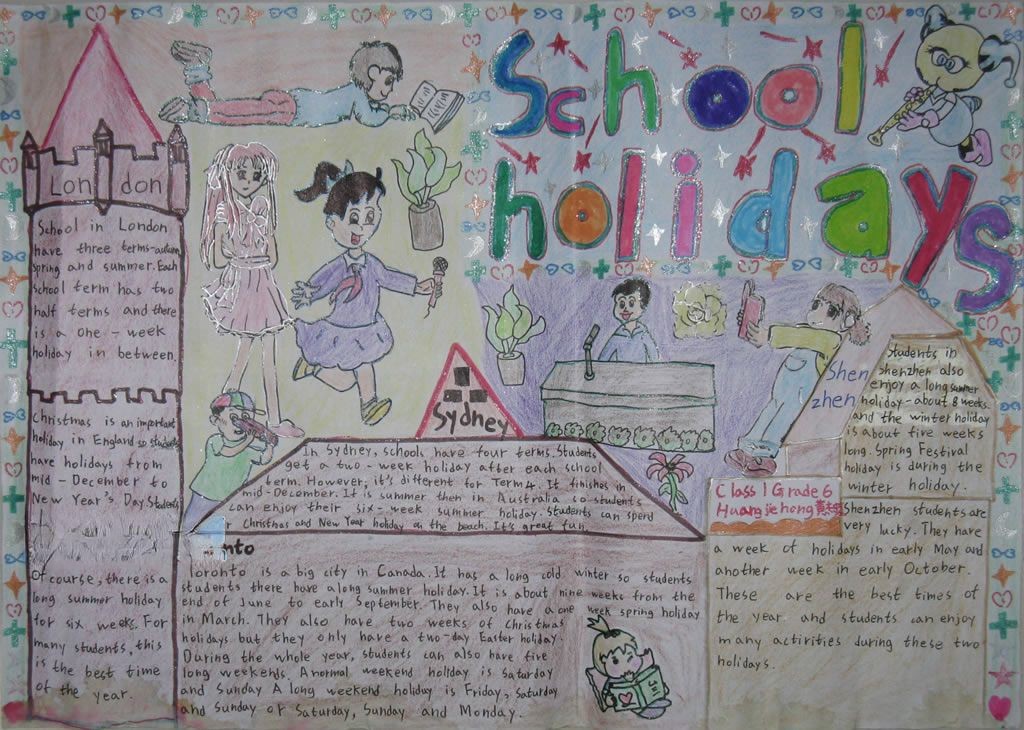 School
holidays
London
School in London
have three terms-autumn
spring and summer. Each
school term has two
half terms and there
is a one-week
holiday in between.
Christmas is an important
holiday in England so students
have holidays from
mid-December to
New Year's Day. Students
Of course, there is a
long summer holiday
for six weeks. For
many students, this
is the best time
of the year.
Sydney
In Sydney, schools have four terms. Students
get a two-week holiday after each school
term. However, it's different for Term 4. It finishes in
mid-December. It is summer then in Australia so students
can enjoy their six-week summer holiday. Students can spend
Christmas and New Year holiday on the beach. It's great fun.
Toronto is a big city in Canada. It has a long cold winter so students
students there have a long summer holiday. It is about nine weeks from the
end of June to early September. They also have a one week spring holiday
in March. They also have two weeks of Christmas
holidays but they only have a two-day Easter holiday.
During the whole year, students can also have five
long weekends. A normal weekend holiday is Saturday
and Sunday A long weekend holiday is Friday, Saturday
and Sunday or Saturday, Sunday and Monday.
Shen
zhen
Students in
Shenzhen also
enjoy a long summer
holiday-about 8 weeks.
and the winter holiday
is about five weeks
long. Spring Festival
holiday is during the
winter holiday.
Class 1 Grade 6
Huang jie hong
Shenzhen students are
very lucky. They have
a week of holidays in early May and
another week in early October.
These are the best times of
the year and students can enjoy
many activities during these two
holidays.